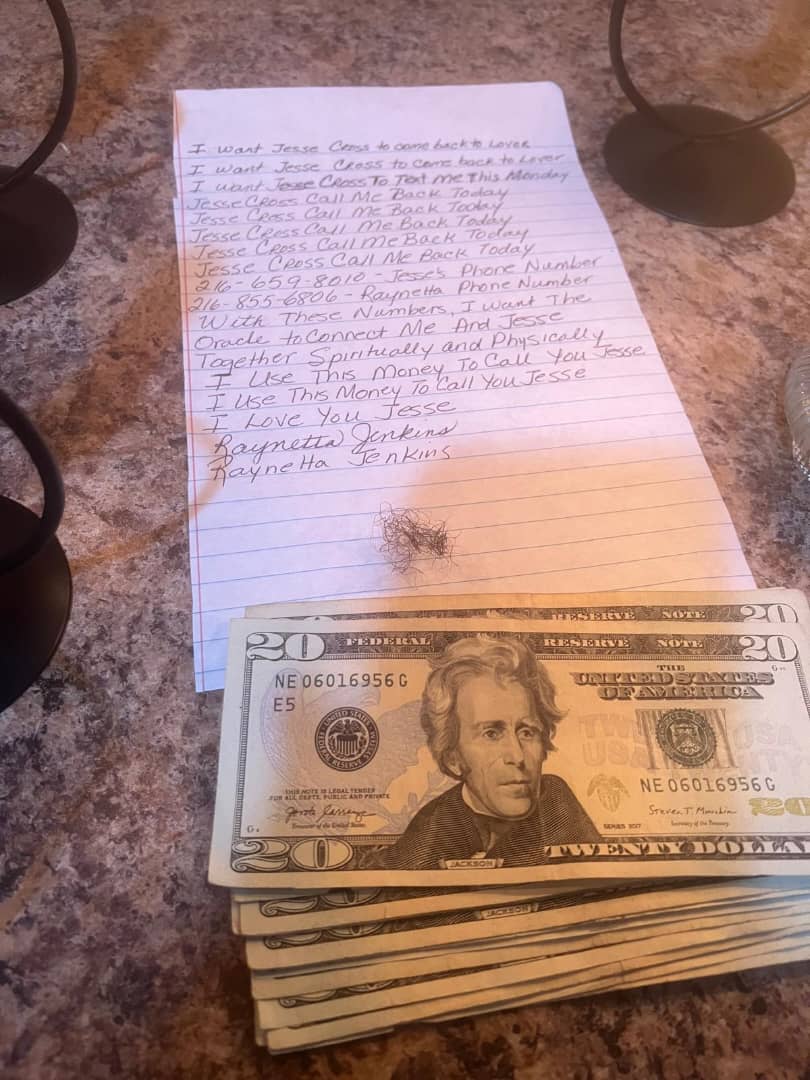 I want Jesse Cross to come back to Lover
I want Jesse Cross to come back to Lover
I want Jesse Cross To Text me This Monday
Jesse Cross Call Me Back Today
Jesse Cross Call Me Back Today
Jesse Cross Call Me Back Today
Jesse Cross Call Me Back Today
Jesse Cross Call Me Back Today
216-659-8010 - Jesse's Phone Number
216-855-6806 - Raynetta Phone Number
With These Numbers, I want The
Oracle to Connect Me And Jesse
Together Spiritually and Physically
I Use This Money To Call You Jesse
I Use This Money To Call You Jesse
I Love You Jesse
Raynetta Jenkins
Raynetta Jenkins
RESERVE NOTE 20
20 FEDERAL RESERVE NOTE 20
THE
UNITED STATES
OF AMERICA
NE 06016956 G
E5
THIS NOTE IS LEGAL TENDER
FOR ALL DEBTS, PUBLIC AND PRIVATE
NE 06016956 G
Steven T. Mnuchin
Treasurer of the United States
SERIES 2017
Secretary of the Treasury
20 JACKSON TWENTY DOLLA
JACKSON